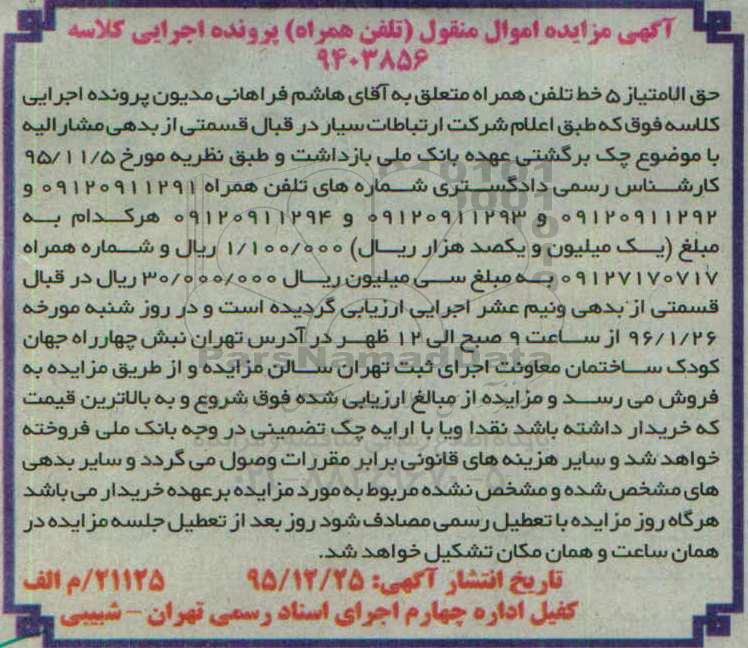 آگهی مزایده اموال منقول (تلفن همراه) پرونده اجرایی کلاسه
۹۴۰۳۸۵۶
حق الامتیاز ۵ خط تلفن همراه متعلق به آقای هاشم فراهانی مدیون پرونده اجرایی
کلاسه فوق که طبق اعلام شرکت ارتباطات سیار در قبال قسمتی از بدهی مشارالیه
با موضوع چک برگشتی عهده بانک ملی بازداشت و طبق نظریه مورخ ۹۵/۱۱/۵
کارشناس رسمی دادگستری شماره های تلفن همراه ۰۹۱۲۰۹۱۱۲۹۱ و
۰۹۱۲۰۹۱۱۲۹۲ و ۰۹۱۲۰۹۱۱۲۹۳ و ۰۹۱۲۰۹۱۱۲۹۴ هرکدام به
مبلغ (یک میلیون و یکصد هزار ریال) ۱/۱۰۰/۰۰۰ ریال و شماره همراه
۰۹۱۲۷۱۷۰۷۱۷ به مبلغ سی میلیون ریال ۳۰/۰۰۰/۰۰۰ ریال در قبال
قسمتی از بدهی ونیم عشر اجرایی ارزیابی گردیده است و در روز شنبه مورخه
۹۶/۱/۲۶ از ساعت ۹ صبح الی ۱۲ ظهر در آدرس تهران نبش چهارراه جهان
کودک ساختمان معاونت اجرای ثبت تهران سالن مزایده و از طریق مزایده به
فروش می رسد و مزایده از مبالغ ارزیابی شده فوق شروع و به بالاترین قیمت
که خریدار داشته باشد نقدا ویا با ارایه چک تضمینی در وجه بانک ملی فروخته
خواهد شد و سایر هزینه های قانونی برابر مقررات وصول می گردد و سایر بدهی
های مشخص شده و مشخص نشده مربوط به مورد مزایده برعهده خریدار می باشد
هرگاه روز مزایده با تعطیل رسمی مصادف شود روز بعد از تعطیل جلسه مزایده در
همان ساعت و همان مکان تشکیل خواهد شد.
تاریخ انتشار آگهی: ۹۵/۱۲/۲۵ ۲۱۱۲۵/م الف
کفیل اداره چهارم اجرای اسناد رسمی تهران - شبیبی
ParsNamadData